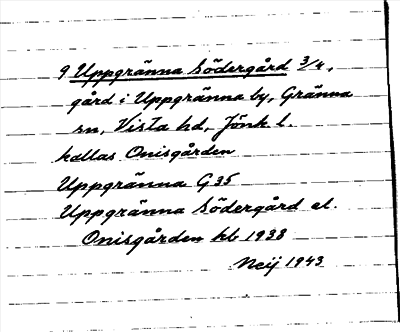 9 Uppgränna Södergård 3/4,
gård i Uppgränna by, Gränna
sn, Vista hd, Jönk l.
kallas Onisgården
Uppgränna G35
Uppgränna Södergård el.
Onisgården kb 1938
Neij 1943